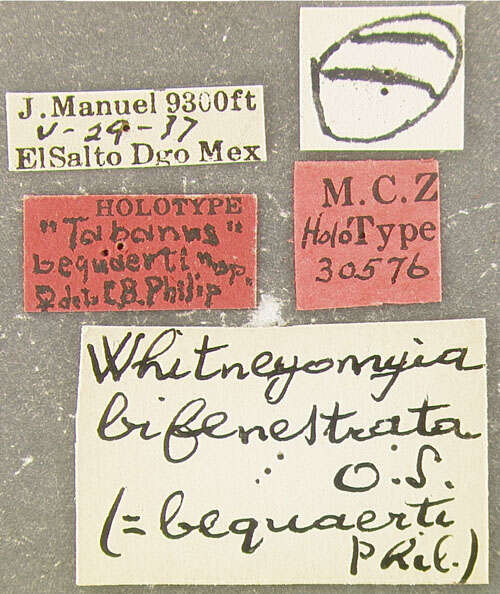 J. Manuel 9300ft
V-29-37
El Salto Dgo Mex
HOLOTYPE
"Tabanus"
bequaerti "n sp"
♀ det. C.B. Philip
M.C.Z
Holo Type
30576
Whitneyomyia
bifenestrata
O.S.
(=bequaerti
Phil.)